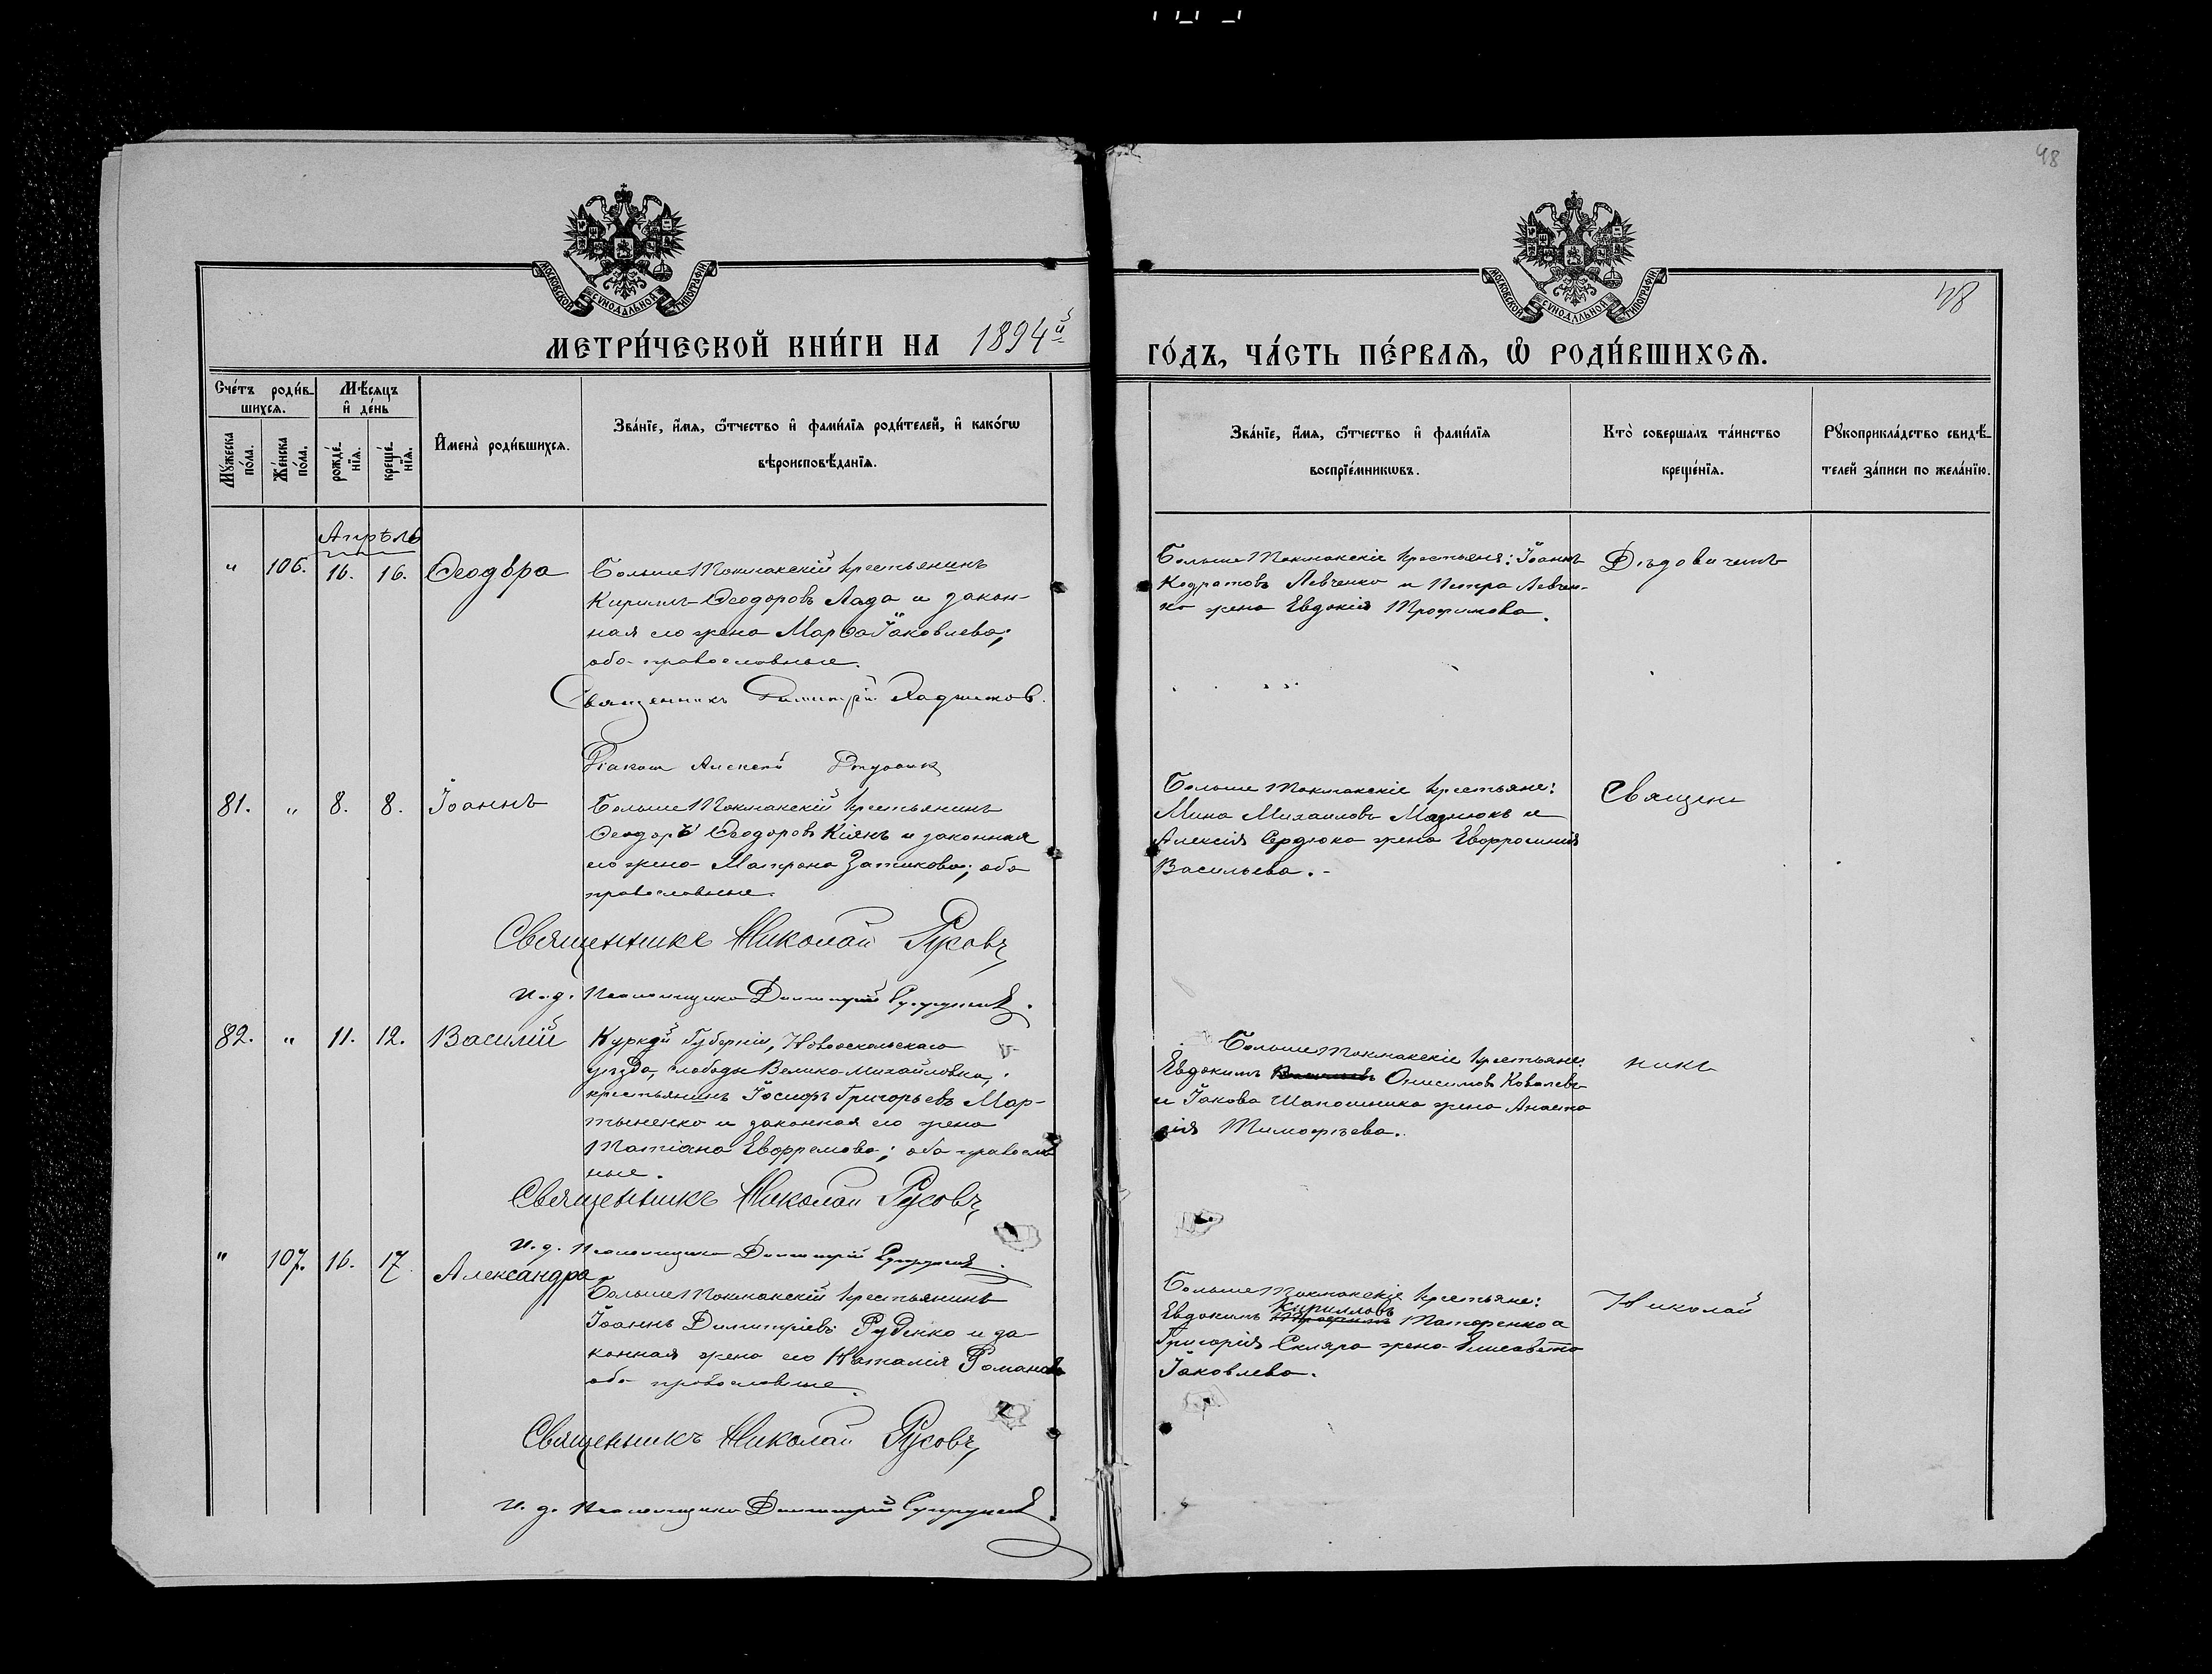 48
МОСКОВСКОЙ СѴНОДАЛЬНОЙ ТИПОГРАФІИ
МОСКОВСКОЙ СѴНОДАЛЬНОЙ ТИПОГРАФІИ
48
МЕТРИ́ЧЕСКОЙ КНИ́ГИ НА 1894й
ГО́ДЪ, ЧА́СТЬ ПЕ́РВАѦ, Ѡ҆ РОДИ́ВШИХСѦ.
Сче́тъ роди́вшихсѧ.
Мѣ́сѧцъ и҆ де́нь
Мꙋ́жеска по́ла.
Же́нска по́ла.
рожде́нїѧ.
креще́нїѧ.
И҆мена̀ роди́вшихсѧ.
Зва́нїе, и҆́мѧ, ѻ҆́тчество и҆ фами́лїѧ роди́телей, и҆ како́гѡ
вѣроисповѣ́данїѧ.
Зва́нїе, и҆́мѧ, ѻ҆́тчество и҆ фами́лїѧ
воспрїе́мникѡвъ.
Кто̀ соверша́лъ та́инство
креще́нїѧ.
Рꙋкоприкла́дство свидѣ́-
телей за́писи по жела́нїю.
Апрѣль
" 106. 16. 16. Ѳеодора
БольшеТокмакскій крестьянинъ
Кириллъ Ѳеодоровъ Лада и закон-
ная его жена Марѳа Іаковлева;
оба православные.
Священникъ Димитрій
Діаконъ Алексей
БольшеТокмакскіе крестьяне: Іоаннъ
Кодратовъ Левченко и Петра Левчен-
ко жена Евдокія Трофимова.
Дѣдовичемъ
81. " 8. 8. Іоаннъ
БольшеТокмакскій крестьянинъ
Ѳеодоръ Ѳеодоровъ Кіянъ и законная
его жена Матрона; оба
православные.
Священникъ Николай Русовъ
и. д. Псаломщика Димитрій
БольшеТокмакскіе крестьяне:
Мина Михаиловъ и
Алексія Сердюка жена Евфросинія
Васильева.
Священ
82. " 11. 12. Василій
Курской Губерніи, Новооскольскаго
уѣзда, слободы Велико-Михайловки,
крестьянинъ Іосифъ Григорьевъ Мар-
тыненко и законная его жена
Татіана Евфремова; оба правосла
ные.
Священникъ Николай Русовъ
и. д. Псаломщика Димитрій
БольшеТокмакскіе крестьяне:
Евдокимъ Онисимовъ Ковалевъ
и Іакова Шапошника жена Анаста
сія Тимофѣева.
никъ
" 107. 16. 17. Александра
БольшеТокмакскій крестьянинъ
Іоаннъ Димитріевъ Руденко и за-
конная жена его Наталія Романова
оба православные.
Священникъ Николай Русовъ
и. д. Псаломщика Димитрій
БольшеТокмакскіе крестьяне:
Евдокимъ Кирилловъ
Григорія Скляра жена Елисавета
Іаковлева.
Николай